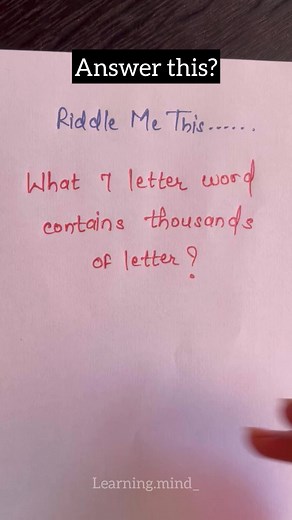 Answer this?
Riddle Me This......
What 7 letter word
contains thousands
of letter?
Learning.mind_